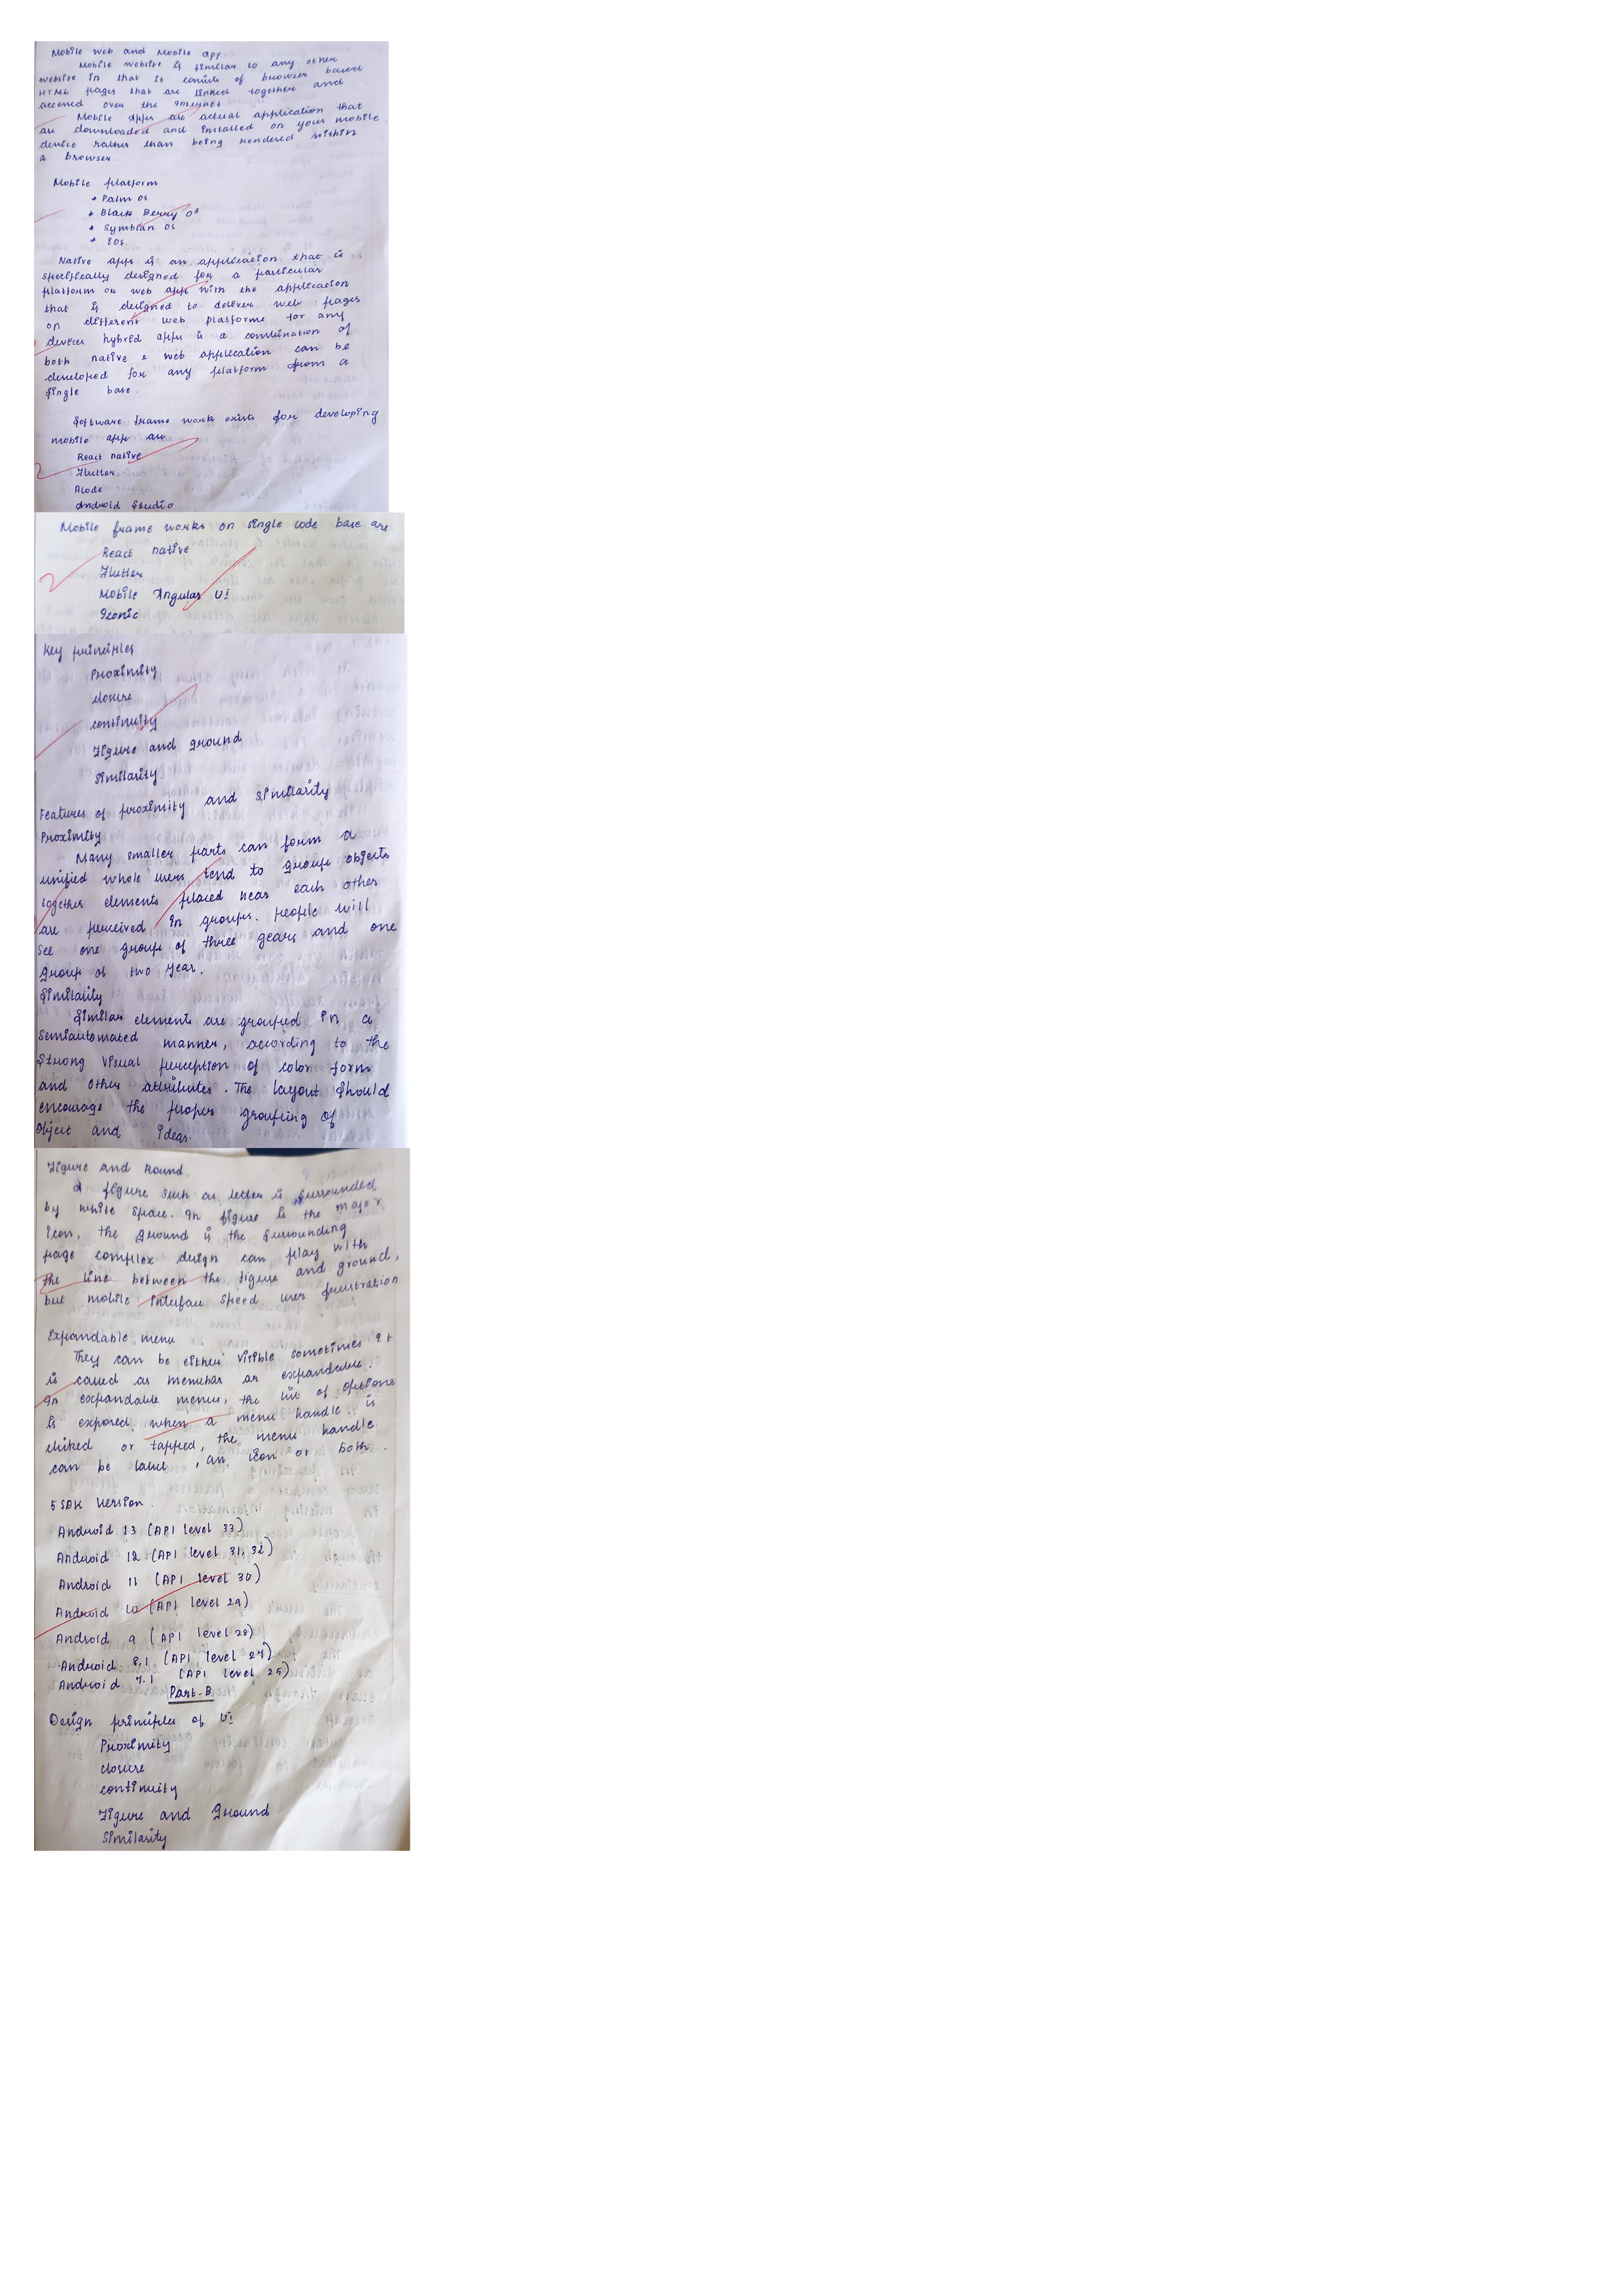 Mobile web and Mobile app.
Mobile website is similar to any other
website in that it consists of browser based
HTML pages that are linked together and
accessed over the Internet
Mobile apps are actual application that
are downloaded and installed on your mobile
device rather than being rendered within
a browser.
Mobile platform
* Palm OS
* Black Berry OS
* Symbian OS
* iOS.
Native apps is an application that is
specifically designed for a particular
platform or web app with the application
that is designed to deliver web pages
on different web platforms for any
devices hybrid apps is a combination of
both native & web application can be
developed for any platform from a
single base.
Software frame work exists for developing
mobile app are
React native
Flutter
Xcode
Android Studio
Mobile frame works on single code base are
React native
Flutter
Mobile Angular UI
Iconic
Key principles
Proximity
closure
continuity
Figure and ground
Similarity.
Features of proximity and similarity
Proximity
Many smaller parts can form a
unified whole users tend to group objects
together elements placed near each other
are perceived in groups. people will
see one group of three gears and one
group of two year.
Similarity
Similar elements are grouped in a
semiautomated manner, according to the
strong visual perception of color form
and other attributes. The layout should
encourage the proper grouping of
object and ideas.
Figure and Round.
A figure such as letter is surrounded
by white space. In figure is the major
icon, the ground is the surrounding
page complex design can play with
the line between the figure and ground,
but mobile interface speed user frustration
Expandable menu
They can be either visible sometimes it
is called as menubar or expandable.
In expandable menus, the list of options
is exposed when a menu handle is
clicked or tapped, the menu handle
can be label, an icon or both.
5 SDK Version.
Android 13 (API level 33)
Android 12 (API level 31, 32)
Android 11 (API level 30)
Android 10 (API level 29)
Android 9 (API level 28)
Android 8.1 (API level 27)
Android 7.1 (API level 25)
Part-B
Design principles of UI
Proximity
closure
continuity
Figure and Ground
Similarity